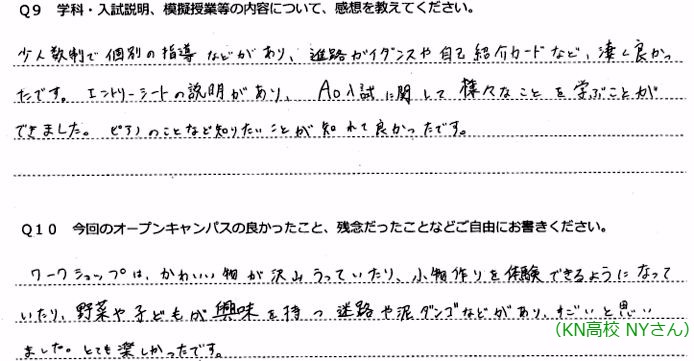 Q9 学科・入試説明、模擬授業等の内容について、感想を教えてください。
少人数制で個別の指導などがあり、進路ガイダンスや自己紹介カードなど、凄く良かっ
たです。エントリーシートの説明があり、AO入試に関して様々なことを学ぶことが
できました。ピアノのことなど知りたいことが知れて良かったです。
Q10 今回のオープンキャンパスの良かったこと、残念だったことなどご自由にお書きください。
ワークショップは、かわいい物が沢山うっていたり、小物作りを体験できるようになって
いたり、野菜や子どもが興味を持つ迷路や泥ダンゴなどがあり、すごいと思い
(KN高校 NYさん)
ました。とても楽しかったです。